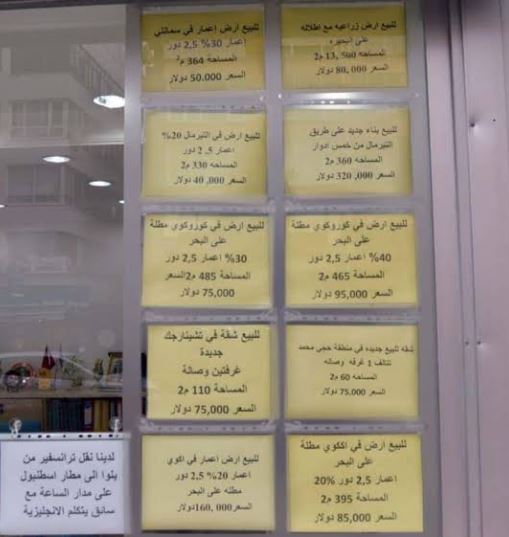 للبيع ارض إعمار في سمانلي
إعمار 30% 2,5 دور
المساحة 364 م2
السعر 50.000 دولار
للبيع ارض زراعيه مع اطلاله
على البحيره
المساحه 13,500 م2
السعر 80,000 دولار
للبيع ارض في التيرمال 20%
اعمار 2,5 دور
المساحه 330 م2
السعر 40,000 دولار
للبيع بناء جديد على طريق
التيرمال من خمس ادوار
المساحه 360 م2
السعر 320,000 دولار
للبيع ارض في كوروكوي مطلة
على البحر
30% اعمار 2,5 دور
المساحة 485 م2السعر
75,000 دولار
للبيع ارض في كوروكوي مطلة
على البحر
40% اعمار 2,5 دور
المساحة 465 م2
السعر 95,000 دولار
للبيع شقة في تشينارجك
جديدة
غرفتين وصالة
المساحة 110 م2
السعر 75,000 دولار
شقه للبيع جديده في منطقة حجي محمد
تتالف 1 غرفه وصاله
المساحه 60 م2
السعر 75,000 دولار
للبيع ارض اعمار في اكوي
اعمار 20% 2,5 دور
مطله على البحر
السعر160,000دولار
للبيع ارض في اككوي مطلة
على البحر
اعمار 2,5 دور 20%
المساحة 395 م2
السعر 85,000 دولار
لدينا نقل ترانسفير من
يلوا الى مطار اسطنبول
على مدار الساعة مع
سائق يتكلم الانجليزية